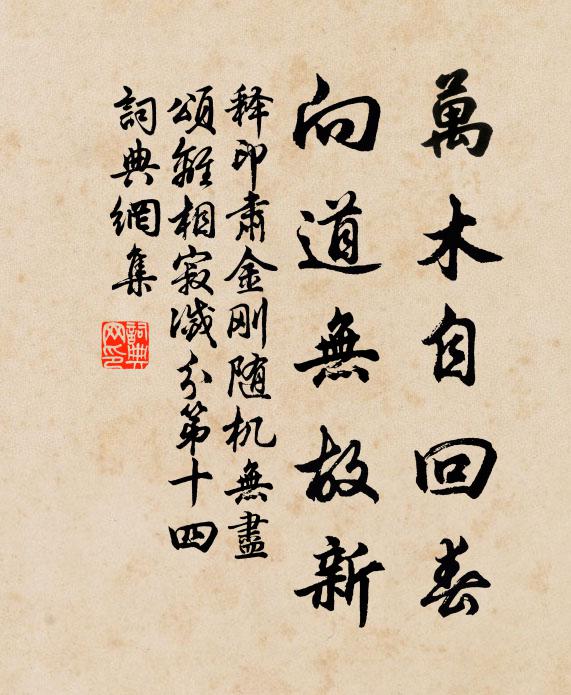 萬木自回春
向道無故新
释印肅金刚随机無盡
頌離相寂滅分第十四
詞典網集
詞典网印